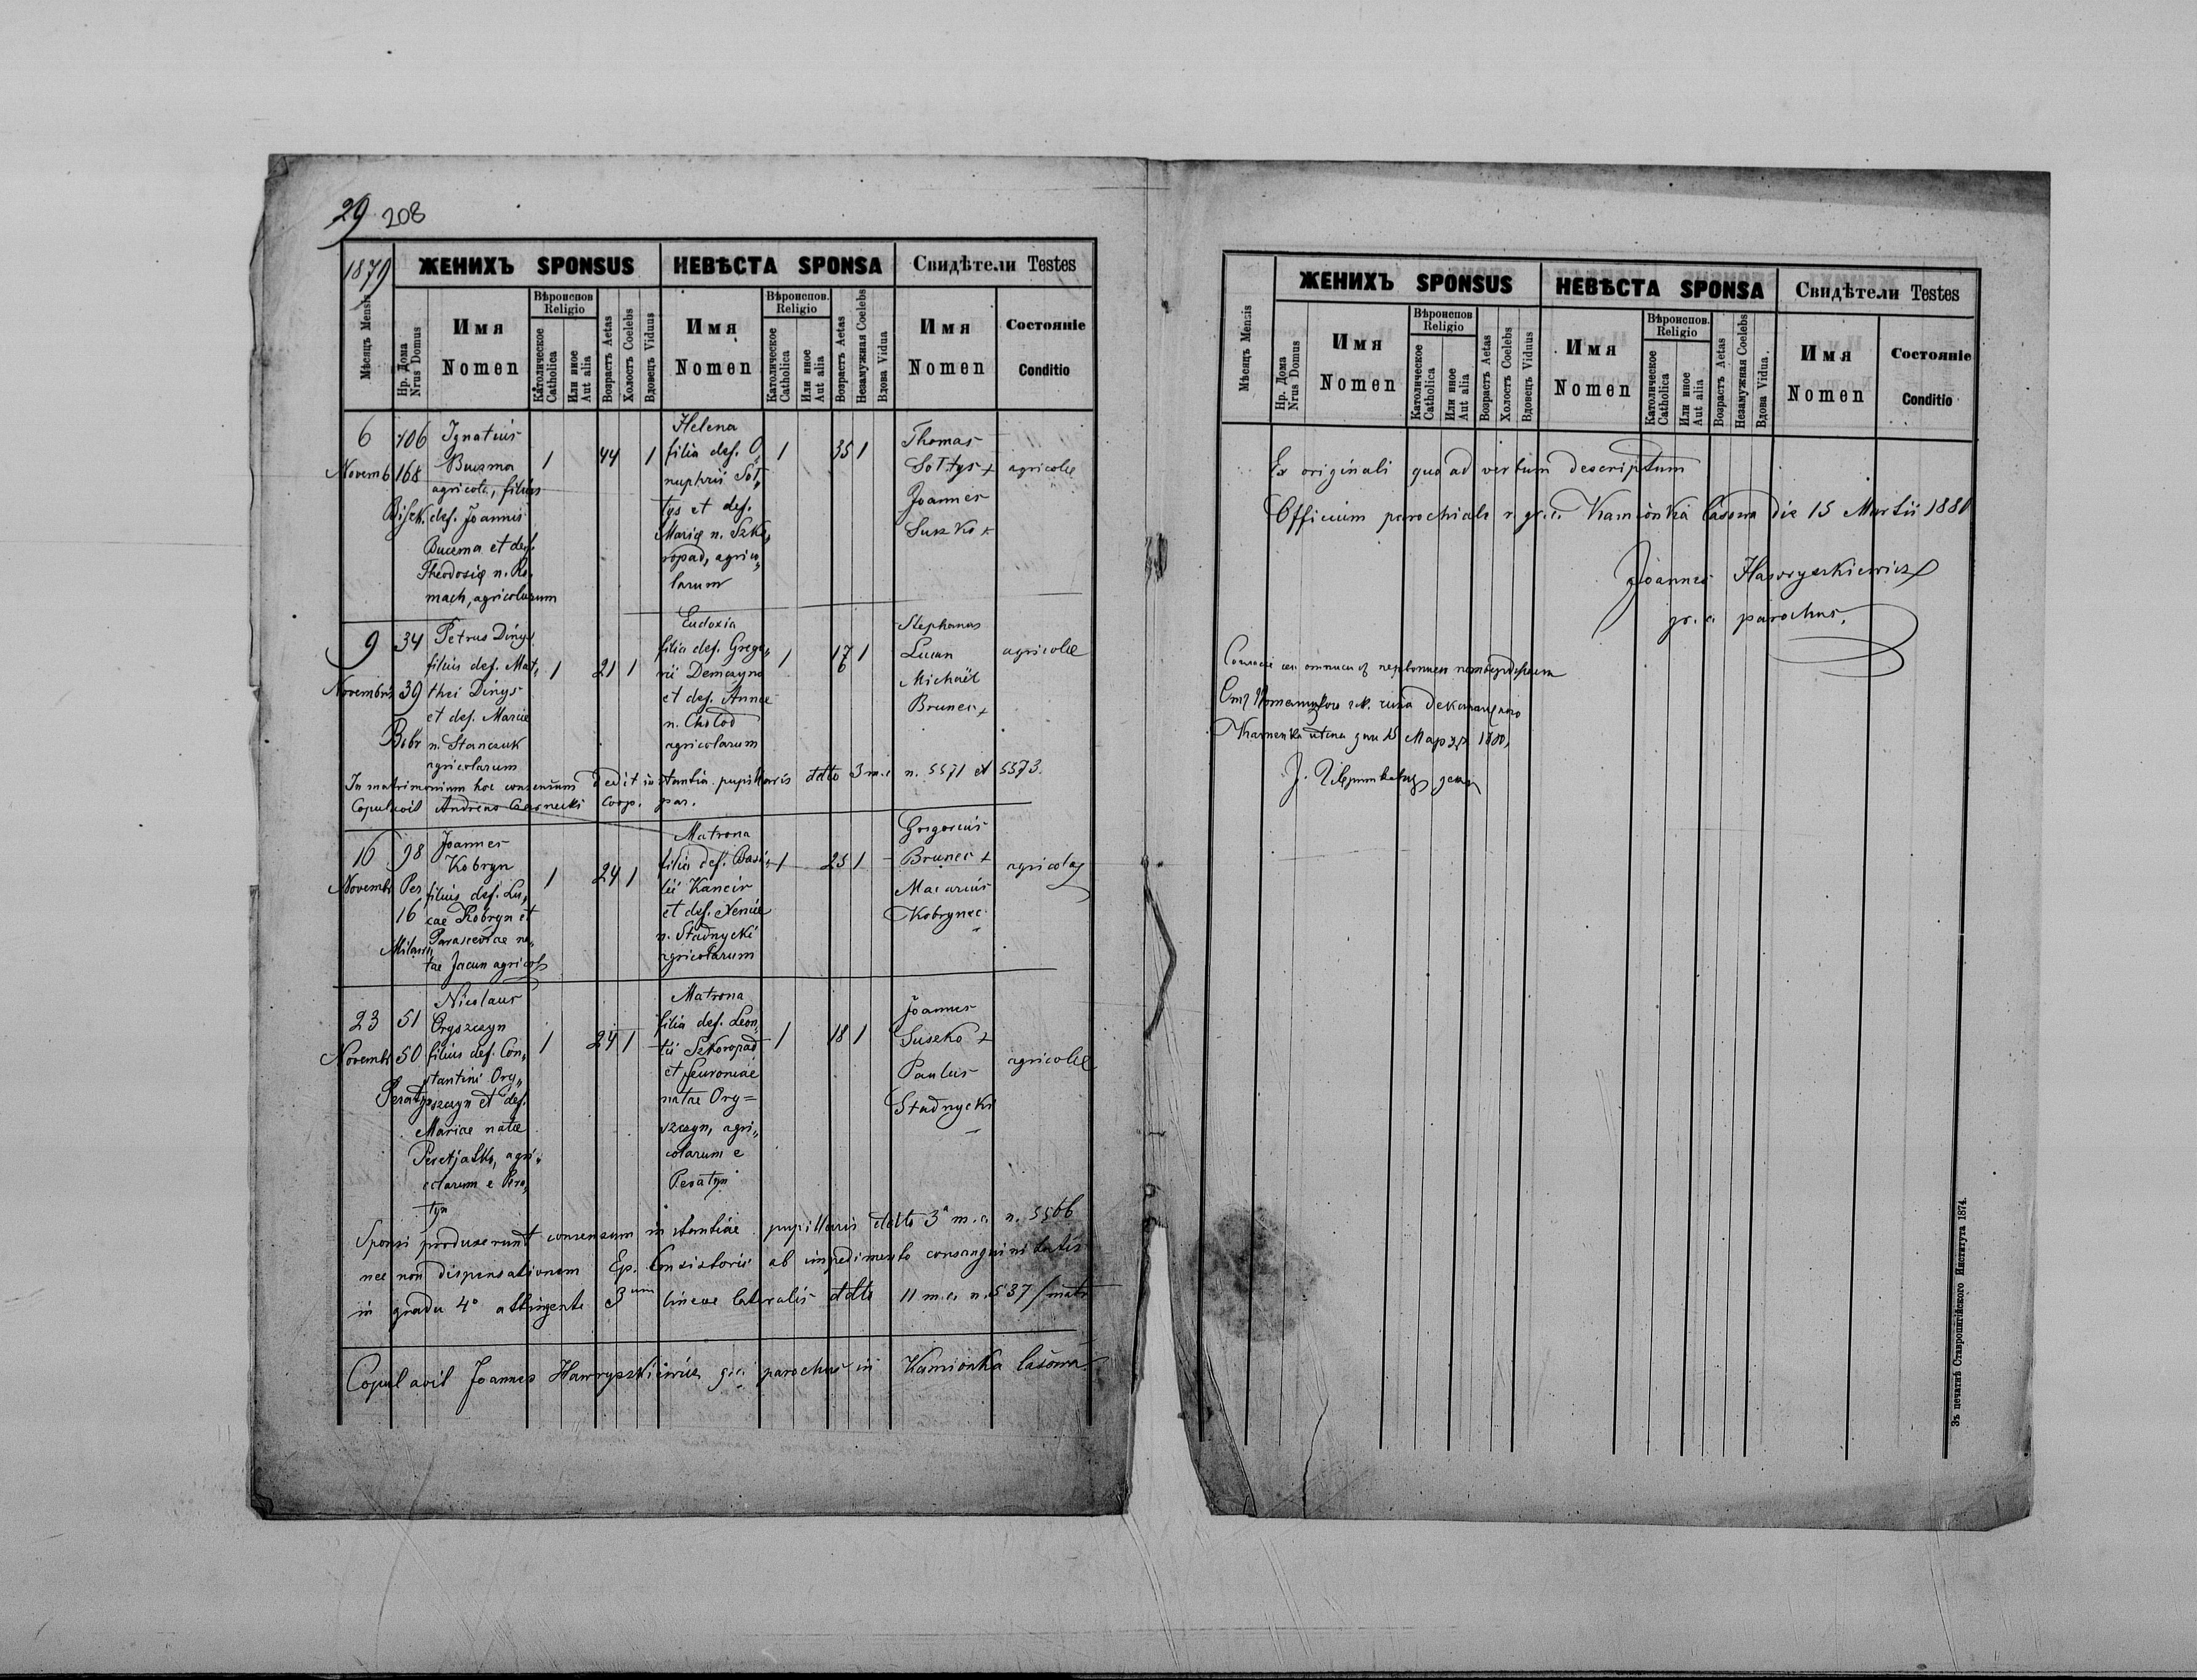 29 208
1879
ЖЕНИХЪ SPONSUS
НЕВѢСТА SPONSA
Свидѣтели Testes
Мѣсяцъ Mensis
Нр. Дома
Nrus Domus
Имя
Nomen
Вѣроиспов
Religio
Католическое
Catholica
Или иное
Aut alia
Возрастъ Aetas
Холостъ Coelebs
Вдовецъ Viduus
Имя
Nomen
Вѣроиспов.
Religio
Католическое
Catholica
Или иное
Aut alia
Возрастъ Aetas
Незамужная Coelebs
Вдова Vidua
Имя
Nomen
Состоянiе
Conditio
6
Novemb
106
168
Ignatius
Buczma
agricola, filius
def. Joannis
Buczma et def.
Theodosiae n. Ro„
mach, agricolarum
1
44
1
Helena
filia def. O„
nuphrii Soł„
tys et def.
Mariae n. Szko„
ropad, agrico„
larum
1
35 1
Thomas
Sołtys +
Joannes
Suszko +
agricolae
9
Novembris
34
39
Petrus Dinys
filius def. Mat„
thei Dinys
et def. Mariae
n. Stanczuk
agricolarum
1
21 1
Eudoxia
filia def. Grego„
rii Demczyna
et def. Annae
n. Chołod
agricolarum
1
17 1
Stephanus
Michaël
Brunec +
agricolae
In matrimonium hoc consensum dedit instantia pupillaris ddto 3 m. c. n. 5571 et 5573.
Copulavit Andreas Czernecki coop. par.
16
Novemb
98
Per
16
Joannes
Kobryn
filius def. Lu„
cae Kobryn et
Parasceviae na„
tae Jacun agricol
1
24 1
Matrona
filia def. Basi„
lii Kancir
et def. Xeniae
n. Stadnycki
agricolarum
1
23 1
Gregorius
Brunec +
Macarius
Kobrynec
agricolae
23
Novemb
51
50
Peratyn
Nicolaus
Oryszczyn
filius def. Con„
stantini Ory„
szczyn et def.
Mariae natae
agri„
colarum e Pera„
tyn
1
24 1
Matrona
filia def. Leon„
tii Szkoropad
et Feuroniae
natae Ory=
szczyn, agri„
colarum e
Peratyn
1
18 1
Joannes
Suszko +
Paulus
Stadnycki
agricolae
Sponsi produxerunt consensum instantiae pupillaris ddto 3 m. c. n. 5566
nec non dispensationem Ep. Consistorii ab impedimento consanguinitatis
in gradu 4° attingente 3um lineae lateralis ddto 11 m. c. n. 537/matr
Copulavit Joannes Hawryszkiewicz g. c. parochus in Kamionka lasowa
ЖЕНИХЪ SPONSUS
НЕВѢСТА SPONSA
Свидѣтели Testes
Мѣсяцъ Mensis
Нр. Дома
Nrus Domus
Имя
Nomen
Вѣроиспов
Religio
Католическое
Catholica
Или иное
Aut alia
Возрастъ Aetas
Холостъ Coelebs
Вдовецъ Viduus
Имя
Nomen
Вѣроиспов.
Religio
Католическое
Catholica
Или иное
Aut alia
Возрастъ Aetas
Незамужная Coelebs
Вдова Vidua
Имя
Nomen
Состоянiе
Conditio
Ex originali quo ad verbum descriptum
Officium parochiale r. gr. c. Kamionka lasowa die 15 Martii 1880
Joannes Hawryszkiewicz
gr. c. parochus.
Зъ печатнѣ Ставропигiйского Института 1874.